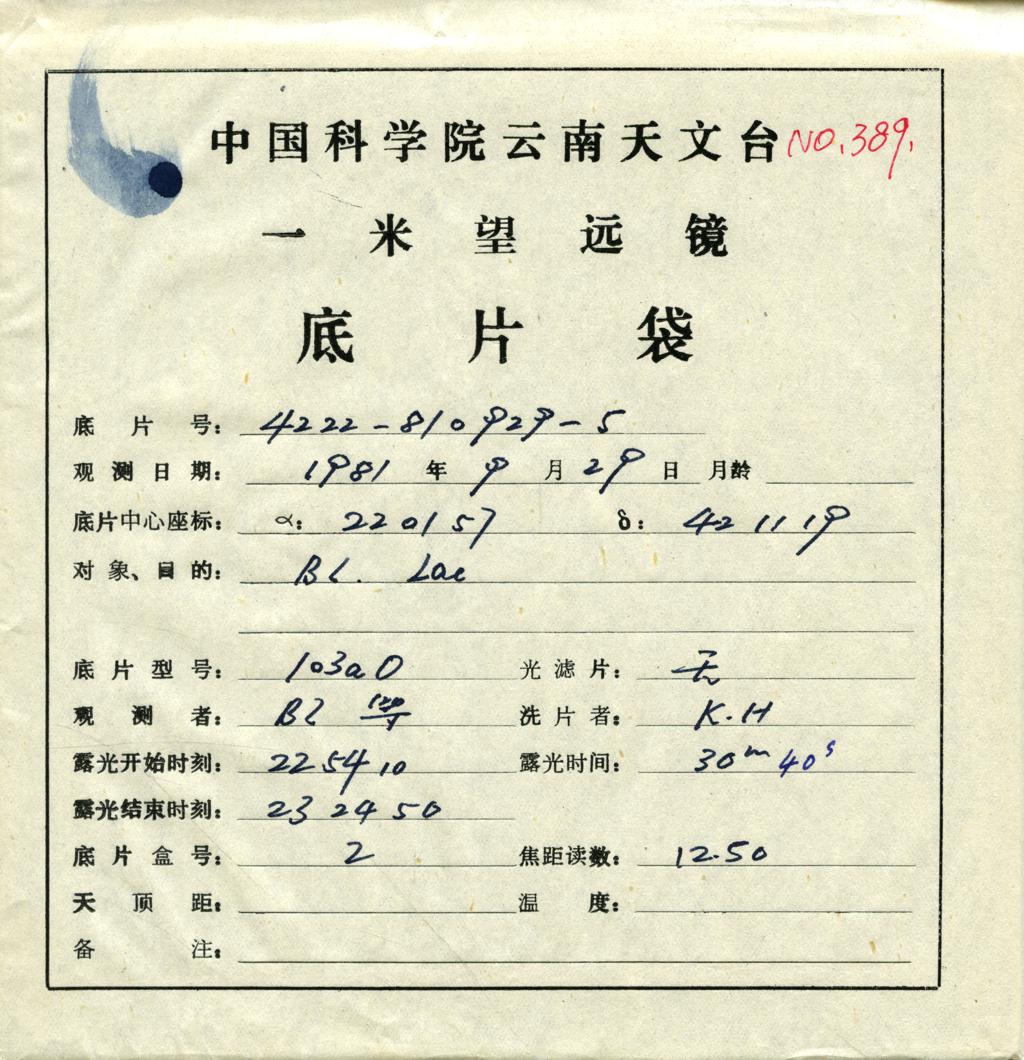 中国科学院云南天文台 NO.389.
一米望远镜
底片袋
底片号: 4222-810929-5
观测日期: 1981年9月29日 月龄
底片中心座标: α: 220157 δ: 421119
对象、目的: BL. Lac
底片型号: 103aO 光滤片: 无
观测者: BL 等 洗片者: K.H
露光开始时刻: 225410 露光时间: 30m 40s
露光结束时刻: 23 24 50
底片盒号: 2 焦距读数: 12.50
天顶距: 温度:
备注: